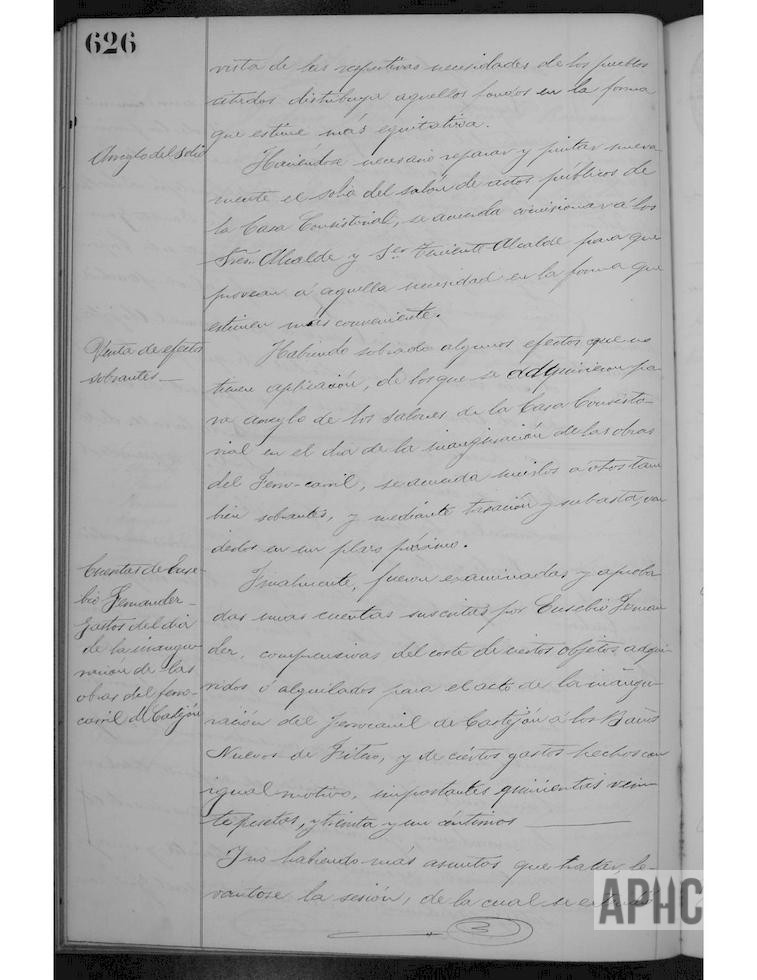 626
vista de las respectivas necesidades de los pueblos
citados distribuya aquellos fondos en la forma
que estime más equitativa.
Arreglo del Solio
Haciéndose necesario reparar y pintar nueva-
mente el solio del salón de actos públicos de
la Casa Consistorial, se acuerda comisionar a los
Sres. Alcalde y 1er. Teniente Alcalde para que
provean a aquella necesidad en la forma que
estimen más conveniente.
Venta de efectos
sobrantes—
Habiendo sobrado algunos efectos que no
tienen aplicación, de los que se adquirieron pa-
ra arreglo de los salones de la Casa Consisto-
rial en el día de la inauguración de las obras
del Ferro-carril, se acuerda unirlos a otros tam
bién sobrantes, y mediante tasación y subasta, ven
derlos en un plazo próximo.
Cuentas de Euse-
bio Fernandez-
gastos del día
de la inaugu-
ración de las
obras del ferro-
carril de Castejón
Finalmente, fueron examinadas y aproba
das unas cuentas suscritas por Eusebio Fernan
dez, comprensivas del coste de ciertos objetos adqui-
ridos ó alquilados para el acto de la inaugu-
ración del ferrocarril de Castejón á los Baños
Nuevos de Fitero, y de ciertos gastos hechos con
igual motivo, importantes quinientas vein-
te pesetas, y treinta y un céntimos —
Y no habiendo más asuntos que tratar, le-
vantose la sesión, de la cual se
APHC